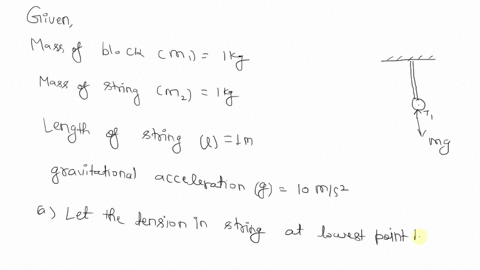 Given,
Mass of block (m1) = 1kg
Mass of string (m2) = 1kg
Length of string (l) = 1m
gravitational acceleration (g) = 10 m/s²
a) Let the tension in string at lowest point
T1
mg